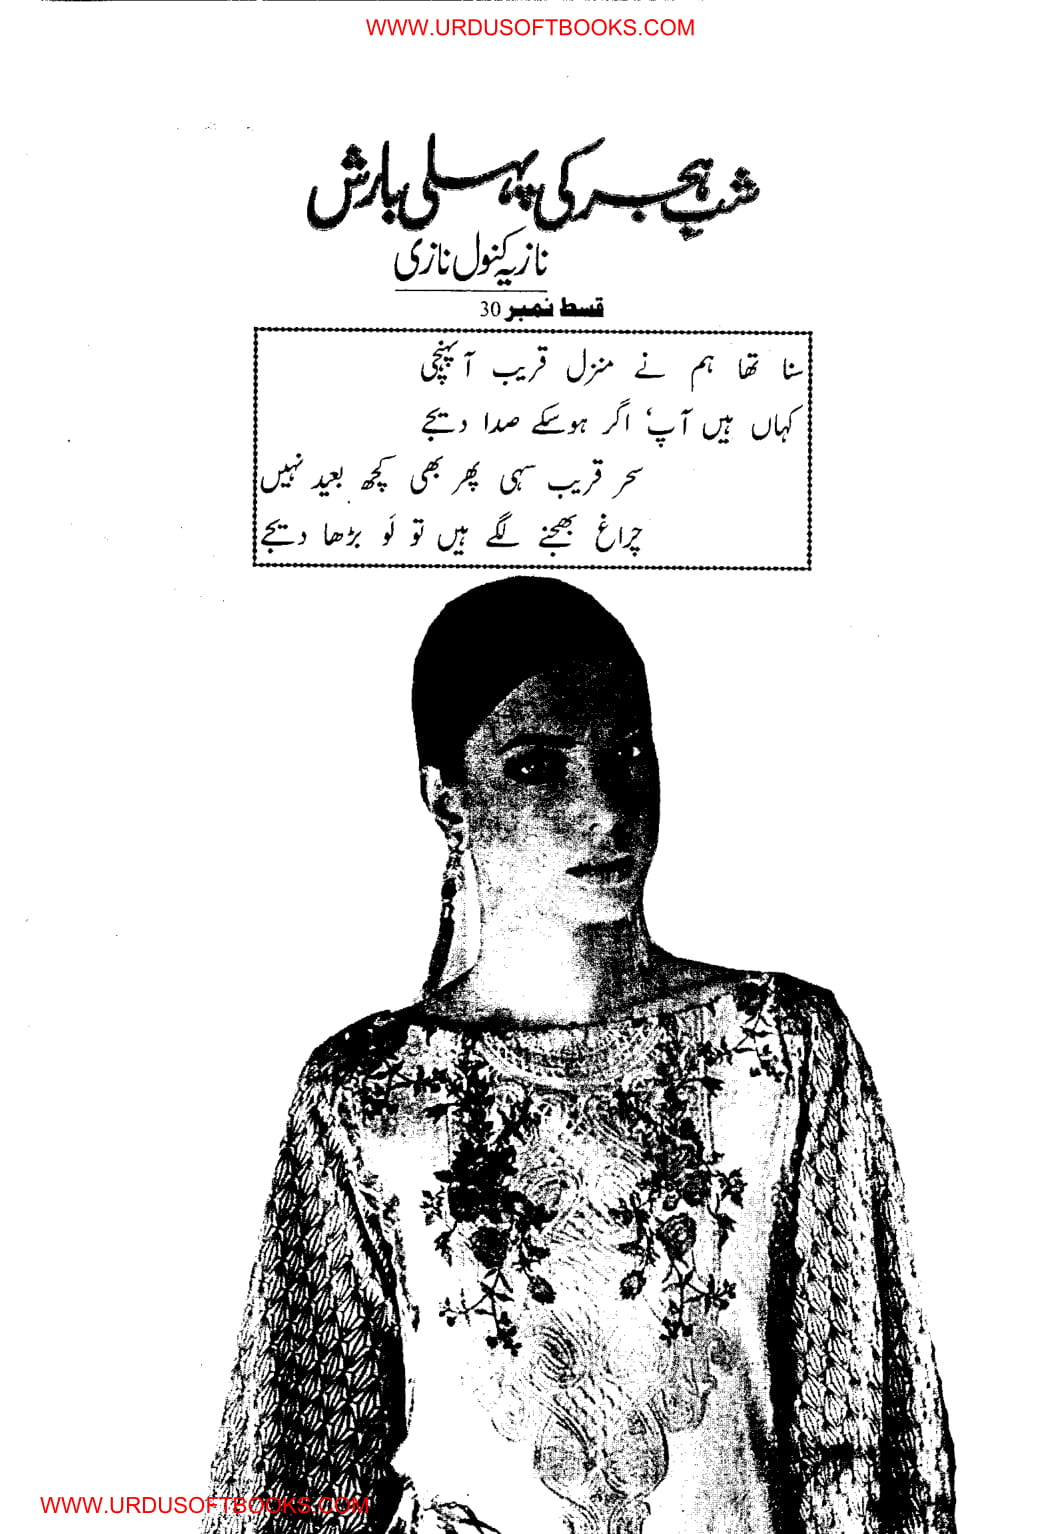 WWW.URDUSOFTBOOKS.COM
شبِ ہجر کی پہلی بارش
نازیہ کنول نازی
قسط نمبر 30
سنا تھا ہم نے منزل قریب آ پہنچی
کہاں ہیں آپ' اگر ہوسکے صدا دیجے
سحر قریب سہی پھر بھی کچھ بعید نہیں
چراغ بجھنے لگے ہیں تو لَو بڑھا دیجے
WWW.URDUSOFTBOOKS.COM